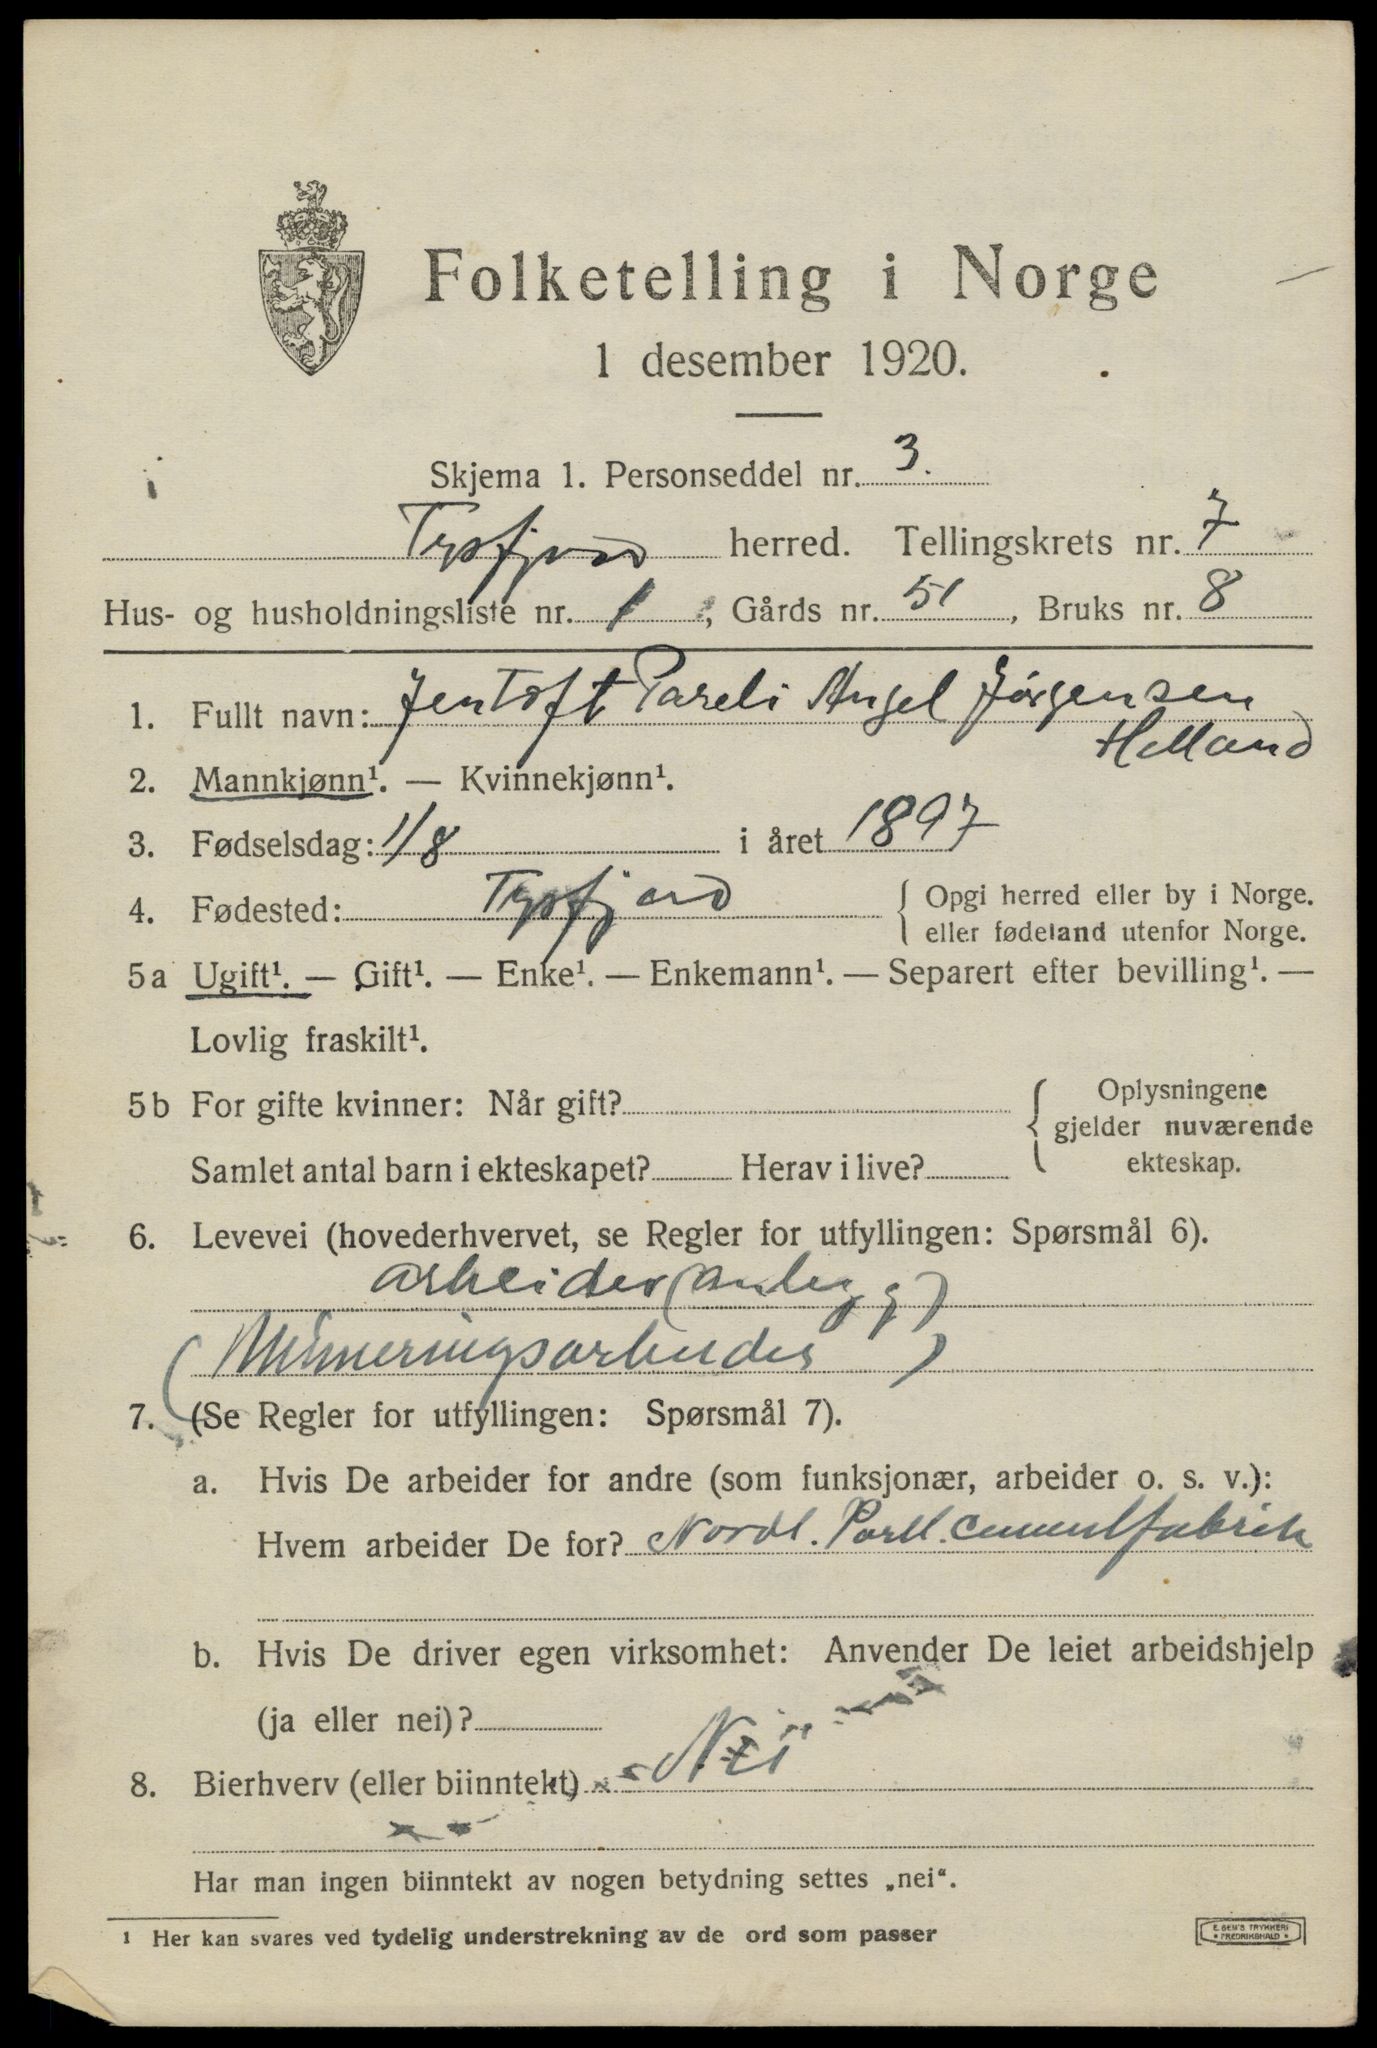 Folketelling i Norge
1 desember 1920.
Skjema 1. Personseddel nr. 3.
Tysfjord herred. Tellingskrets nr. 7
Hus- og husholdningsliste nr. 1, Gårds nr. 51, Bruks nr. 8
1. Fullt navn: Jentoft Pareli Angel Jörgensen
Helland
2. Mannkjønn¹. — Kvinnekjønn¹.
3. Fødselsdag: 1/8 i året 1897
4. Fødested: Tysfjord { Opgi herred eller by i Norge.
eller fødeland utenfor Norge.
5a Ugift¹. — Gift¹. — Enke¹. — Enkemann¹. — Separert efter bevilling¹. —
Lovlig fraskilt¹.
5b For gifte kvinner: Når gift? { Oplysningene
gjelder nuværende
Samlet antal barn i ekteskapet? Herav i live? ekteskap.
6. Levevei (hovederhvervet, se Regler for utfyllingen: Spørsmål 6).
arbeider (anlegg)
(Mineringsarbeider)
7. (Se Regler for utfyllingen: Spørsmål 7).
a. Hvis De arbeider for andre (som funksjonær, arbeider o. s. v.):
Hvem arbeider De for? Nordl. Portl. cementfabrik
b. Hvis De driver egen virksomhet: Anvender De leiet arbeidshjelp
(ja eller nei)?
8. Bierhverv (eller biinntekt) Nei
Har man ingen biinntekt av nogen betydning settes „nei“.
1 Her kan svares ved tydelig understrekning av de ord som passer
E. SEM'S TRYKKERI
FREDRIKSHALD